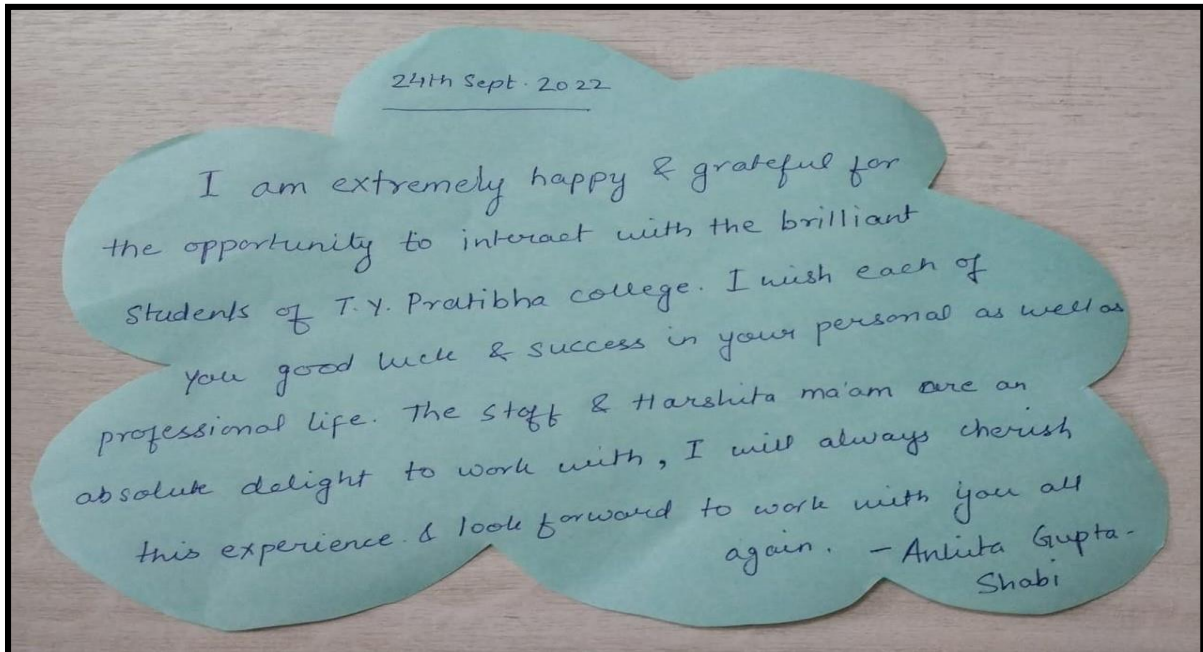 24th Sept. 2022
I am extremely happy & grateful for
the opportunity to interact with the brilliant
students of T.Y. Pratibha college. I wish each of
you good luck & success in your personal as well as
professional life. The staff & Harshita ma'am are an
absolute delight to work with, I will always cherish
this experience & look forward to work with you all
again. - Ankita Gupta-
Shabi